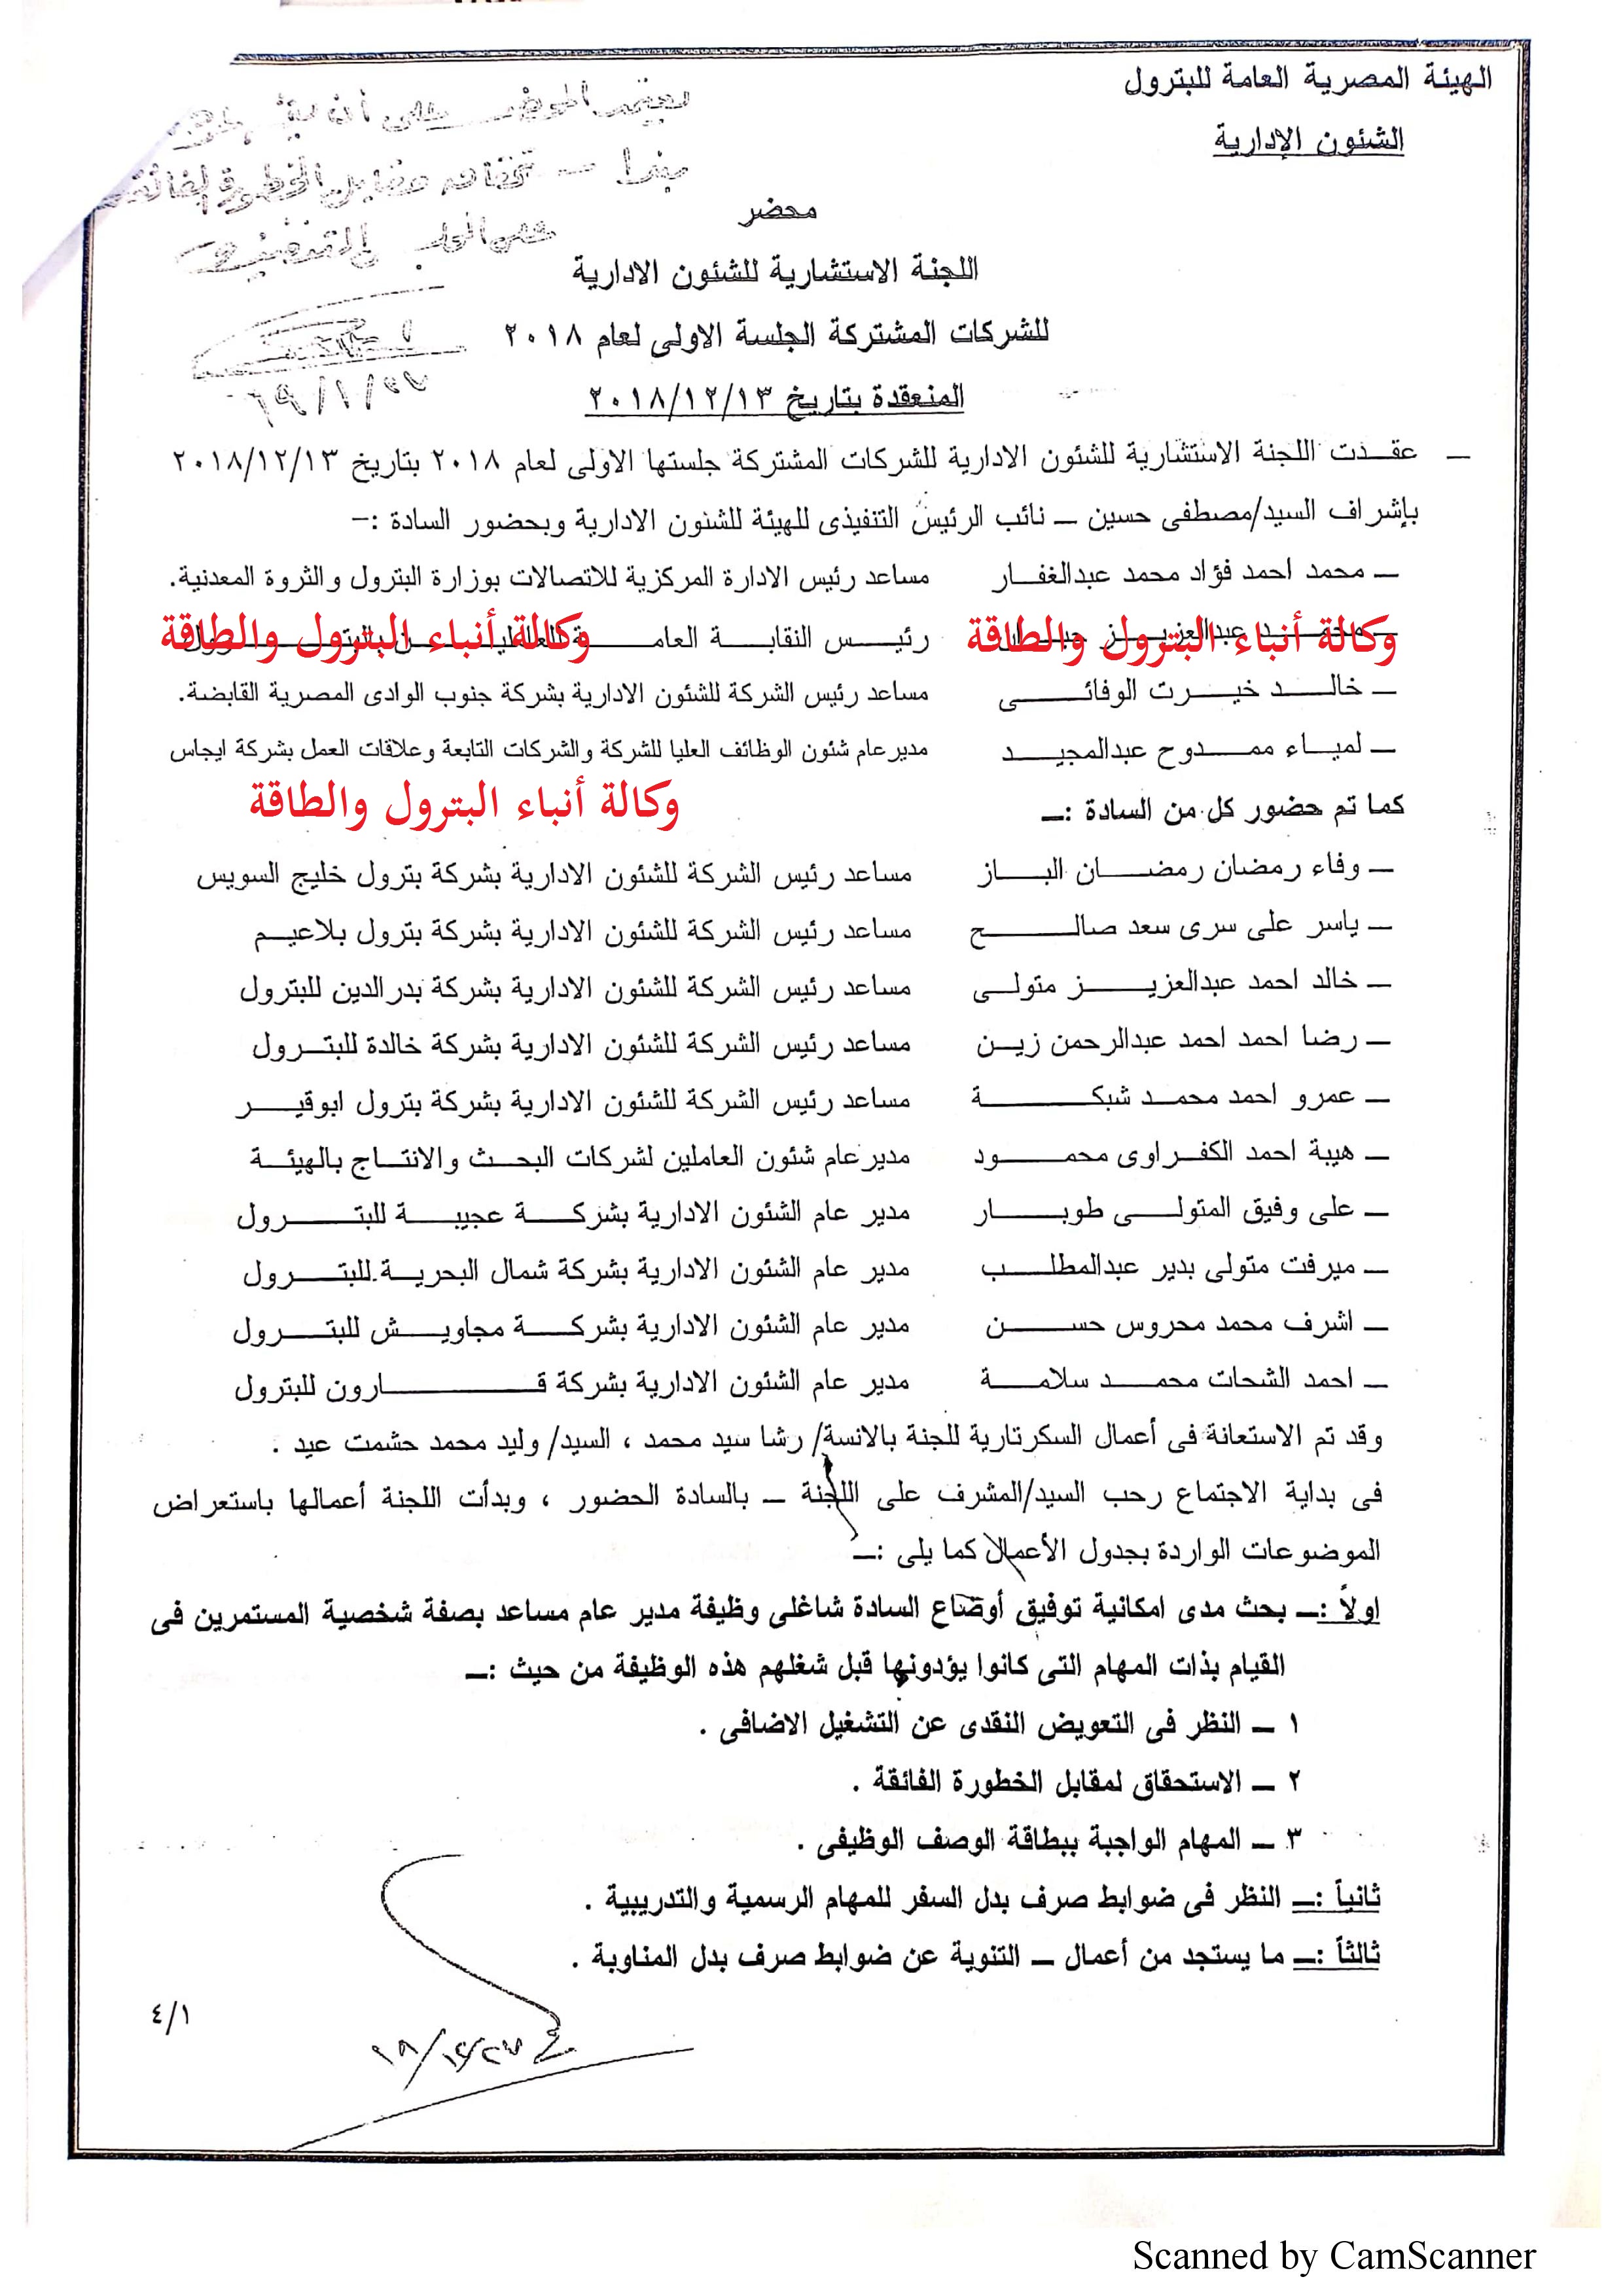 الهيئة المصرية العامة للبترول
الشئون الإدارية
يعتمد المحضر على أن
محضر
اللجنة الاستشارية للشئون الادارية
للشركات المشتركة الجلسة الاولى لعام ٢٠١٨
المنعقدة بتاريخ ٢٠١٨/١٢/١٣
ــ عقـــدت اللجنة الاستشارية للشئون الادارية للشركات المشتركة جلستها الاولى لعام ٢٠١٨ بتاريخ ٢٠١٨/١٢/١٣
بإشراف السيد/مصطفى حسين ــ نائب الرئيس التنفيذى للهيئة للشئون الادارية وبحضور السادة :-
ــ محمد احمد فؤاد محمد عبدالغفـــار مساعد رئيس الادارة المركزية للاتصالات بوزارة البترول والثروة المعدنية.
ــ عبدالعزيـــز رئيــس النقابــة العامـــة
وكالة أنباء البترول والطاقة
وكالة أنباء البترول والطاقة
ــ خالــد خيــرت الوفائــــى مساعد رئيس الشركة للشئون الادارية بشركة جنوب الوادى المصرية القابضة.
ــ لميــاء ممــدوح عبدالمجيـــد مديرعام شئون الوظائف العليا للشركة والشركات التابعة وعلاقات العمل بشركة ايجاس
وكالة أنباء البترول والطاقة
كما تم حضور كل من السادة :ــ
ــ وفاء رمضان رمضــــان البـــاز مساعد رئيس الشركة للشئون الادارية بشركة بترول خليج السويس
ــ ياسر على سرى سعد صالـــــــح مساعد رئيس الشركة للشئون الادارية بشركة بترول بلاعيــم
ــ خالد احمد عبدالعزيـــــز متولــى مساعد رئيس الشركة للشئون الادارية بشركة بدرالدين للبترول
ــ رضا احمد احمد عبدالرحمن زيــن مساعد رئيس الشركة للشئون الادارية بشركة خالدة للبتـــرول
ــ عمرو احمد محمــد شبكـــــــة مساعد رئيس الشركة للشئون الادارية بشركة بترول ابوقيـــر
ــ هيبة احمد الكفــراوى محمــــود مديرعام شئون العاملين لشركات البحـث والانتــاج بالهيئــة
ــ على وفيق المتولــــى طوبــــار مدير عام الشئون الادارية بشركـــة عجيبــة للبتــــرول
ــ ميرفت متولى بدير عبدالمطلــــب مدير عام الشئون الادارية بشركة شمال البحريــة للبتــــرول
ــ اشرف محمد محروس حســـــن مدير عام الشئون الادارية بشركـــة مجاويــش للبتــــرول
ــ احمد الشحات محمــد سلامــــة مدير عام الشئون الادارية بشركة قــــــــــارون للبترول
وقد تم الاستعانة فى أعمال السكرتارية للجنة بالانسة/ رشا سيد محمد ، السيد/ وليد محمد حشمت عيد .
فى بداية الاجتماع رحب السيد/المشرف على اللجنة ــ بالسادة الحضور ، وبدأت اللجنة أعمالها باستعراض
الموضوعات الواردة بجدول الأعمال كما يلى :ــ
اولاً :ــ بحث مدى امكانية توفيق أوضاع السادة شاغلى وظيفة مدير عام مساعد بصفة شخصية المستمرين فى
القيام بذات المهام التى كانوا يؤدونها قبل شغلهم هذه الوظيفة من حيث :ــ
١ ــ النظر فى التعويض النقدى عن التشغيل الاضافى .
٢ ــ الاستحقاق لمقابل الخطورة الفائقة .
٣ ــ المهام الواجبة ببطاقة الوصف الوظيفى .
ثانياً :ــ النظر فى ضوابط صرف بدل السفر للمهام الرسمية والتدريبية .
ثالثاً :ــ ما يستجد من أعمال ــ التنوية عن ضوابط صرف بدل المناوبة .
٤/١
Scanned by CamScanner